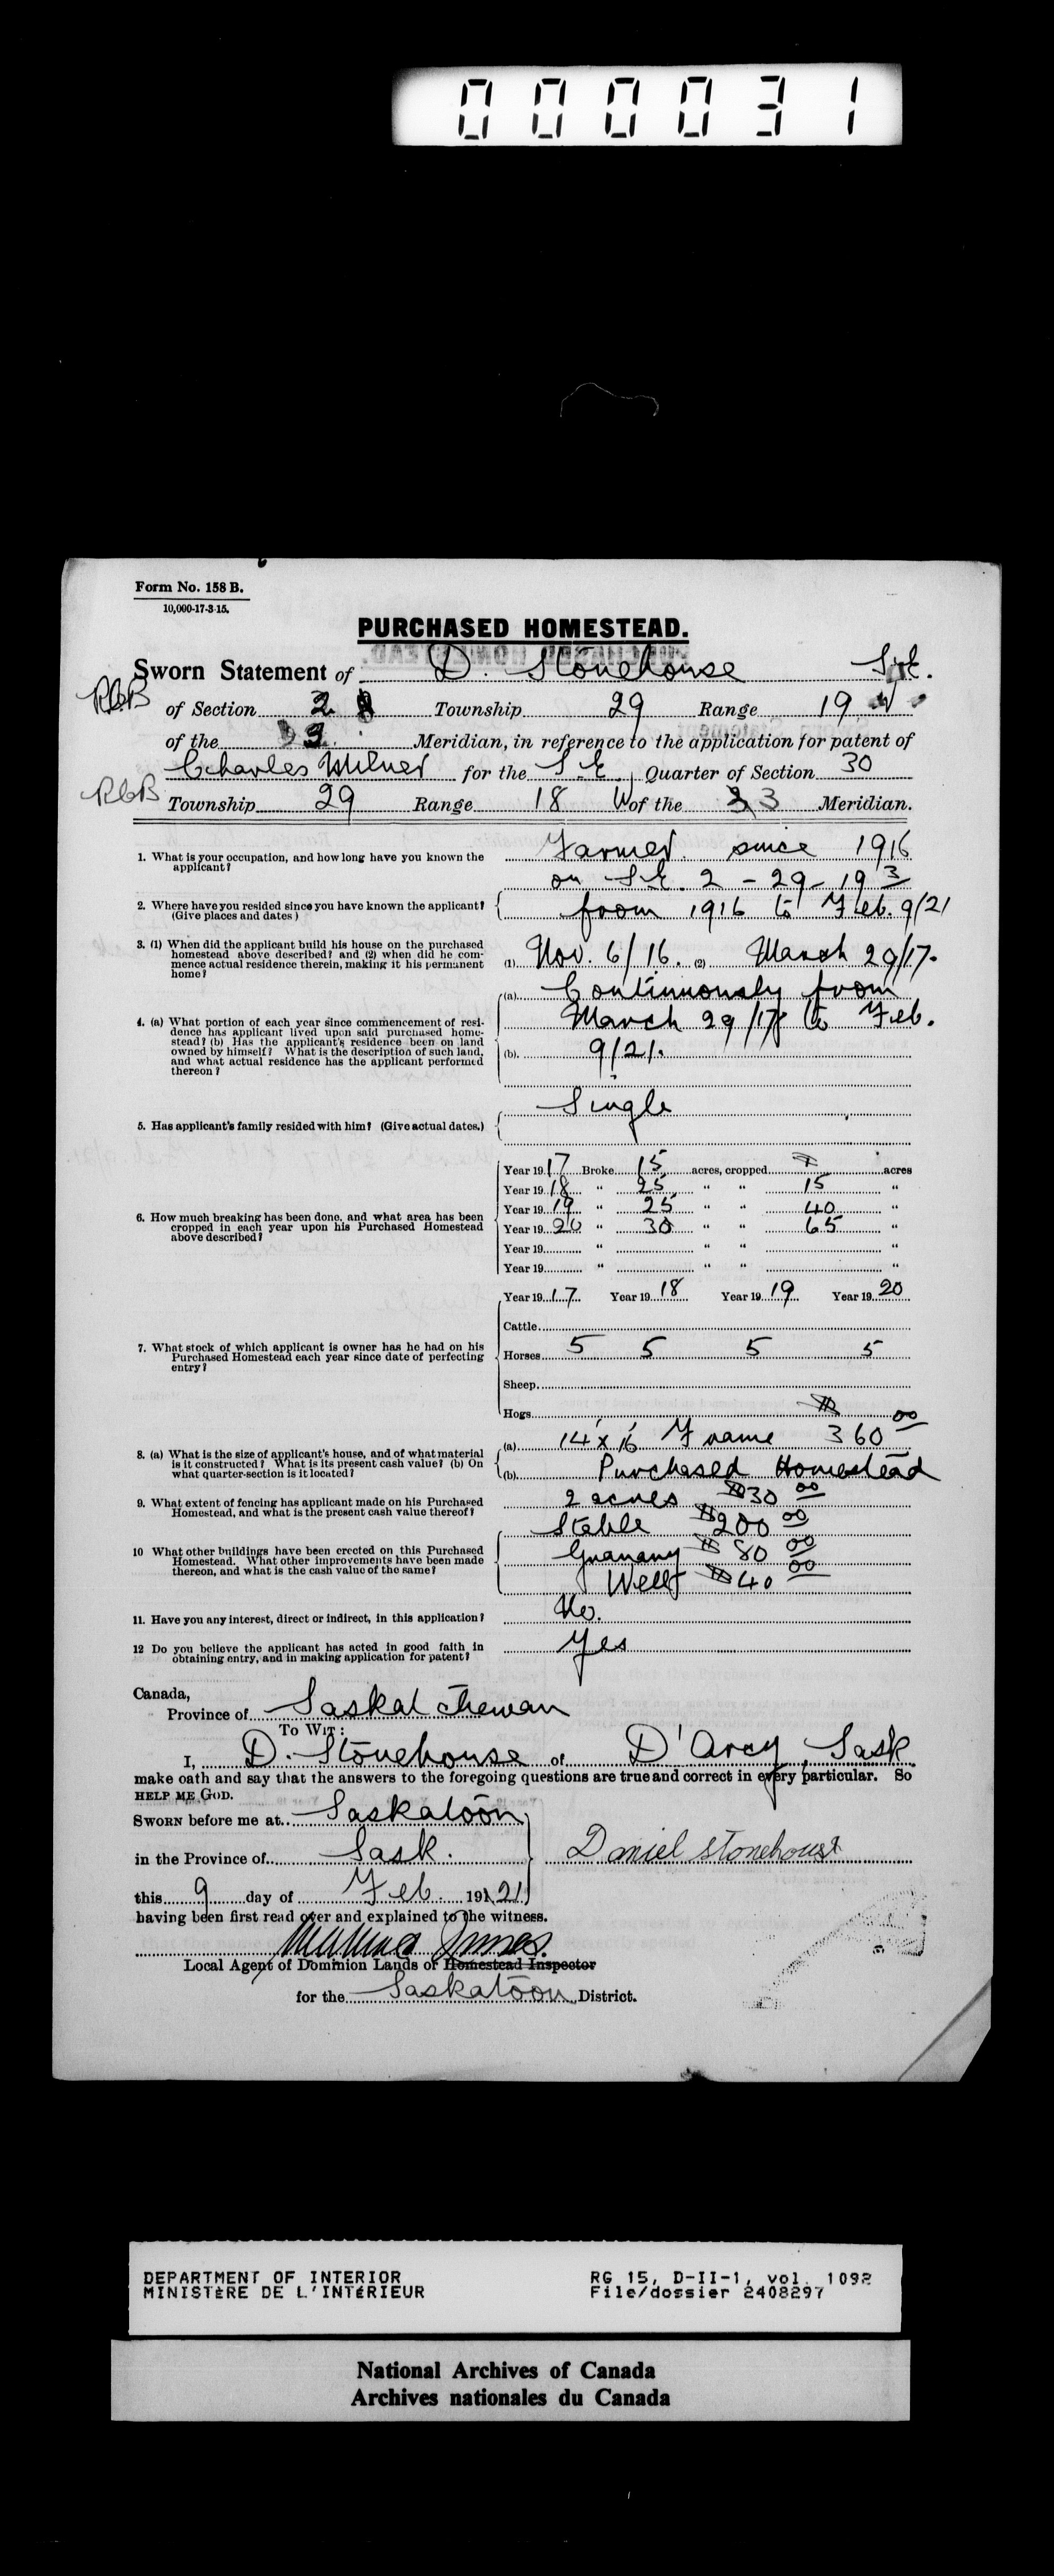 000031
Form No. 158 B.
10,000-17-3-15.
PURCHASED HOMESTEAD.
Sworn Statement of D. Stonehouse S.E.
RbB of Section 2 Township 29 Range 19 W
of the 3 Meridian, in reference to the application for patent of
Charles Milner for the S.E. Quarter of Section 30
RbB Township 29 Range 18 W of the 3 Meridian.
1. What is your occupation, and how long have you known the applicant?
Farmer. since 1916
on S.E. 2 - 29 - 19 3
2. Where have you resided since you have known the applicant?
(Give places and dates)
from 1916 to Feb. 9/21
3. (1) When did the applicant build his house on the purchased
homestead above described? and (2) when did he com-
mence actual residence therein, making it his permanent
home?
(1) Nov. 6/16. (2) March 29/17.
4. (a) What portion of each year since commencement of resi-
dence has applicant lived upon said purchased home-
stead? (b) Has the applicant's residence been on land
owned by himself? What is the description of such land,
and what actual residence has the applicant performed
thereon?
(a) Continuously from
March 29/17 to Feb.
(b) 9/21.
5. Has applicant's family resided with him? (Give actual dates.)
Single
6. How much breaking has been done, and what area has been
cropped in each year upon his Purchased Homestead
above described?
Year 1917 Broke 15 acres, cropped acres
Year 1918 " 25 " " 15 "
Year 1919 " 25 " " 40 "
Year 1920 " 30 " " 65 "
Year 19 " " " "
Year 19 " " " "
7. What stock of which applicant is owner has he had on his
Purchased Homestead each year since date of perfecting
entry?
Year 1917 Year 1918 Year 1919 Year 1920
Cattle
Horses 5 5 5 5
Sheep
Hogs
8. (a) What is the size of applicant's house, and of what material
is it constructed? What is its present cash value? (b) On
what quarter-section is it located?
(a) 14 x 16 Frame $360 00
(b) Purchased Homestead
9. What extent of fencing has applicant made on his Purchased
Homestead, and what is the present cash value thereof?
2 acres $30 00
10 What other buildings have been erected on this Purchased
Homestead. What other improvements have been made
thereon, and what is the cash value of the same?
Stable $200 00
Granary $80 00
Well $40 00
11. Have you any interest, direct or indirect, in this application?
No.
12 Do you believe the applicant has acted in good faith in
obtaining entry, and in making application for patent?
Yes
Canada,
Province of Saskatchewan
To Wit:
I, D. Stonehouse of D'Arcy, Sask
make oath and say that the answers to the foregoing questions are true and correct in every particular. So
HELP ME GOD.
Sworn before me at Saskatoon
in the Province of Sask. Daniel Stonehouse
this 9 day of Feb. 1921
having been first read over and explained to the witness.
Local Agent of Dominion Lands or Homestead Inspector
for the Saskatoon District.
DEPARTMENT OF INTERIOR RG 15, D-II-1, vol. 1098
MINISTÈRE DE L'INTÉRIEUR File/dossier 2408297
National Archives of Canada
Archives nationales du Canada